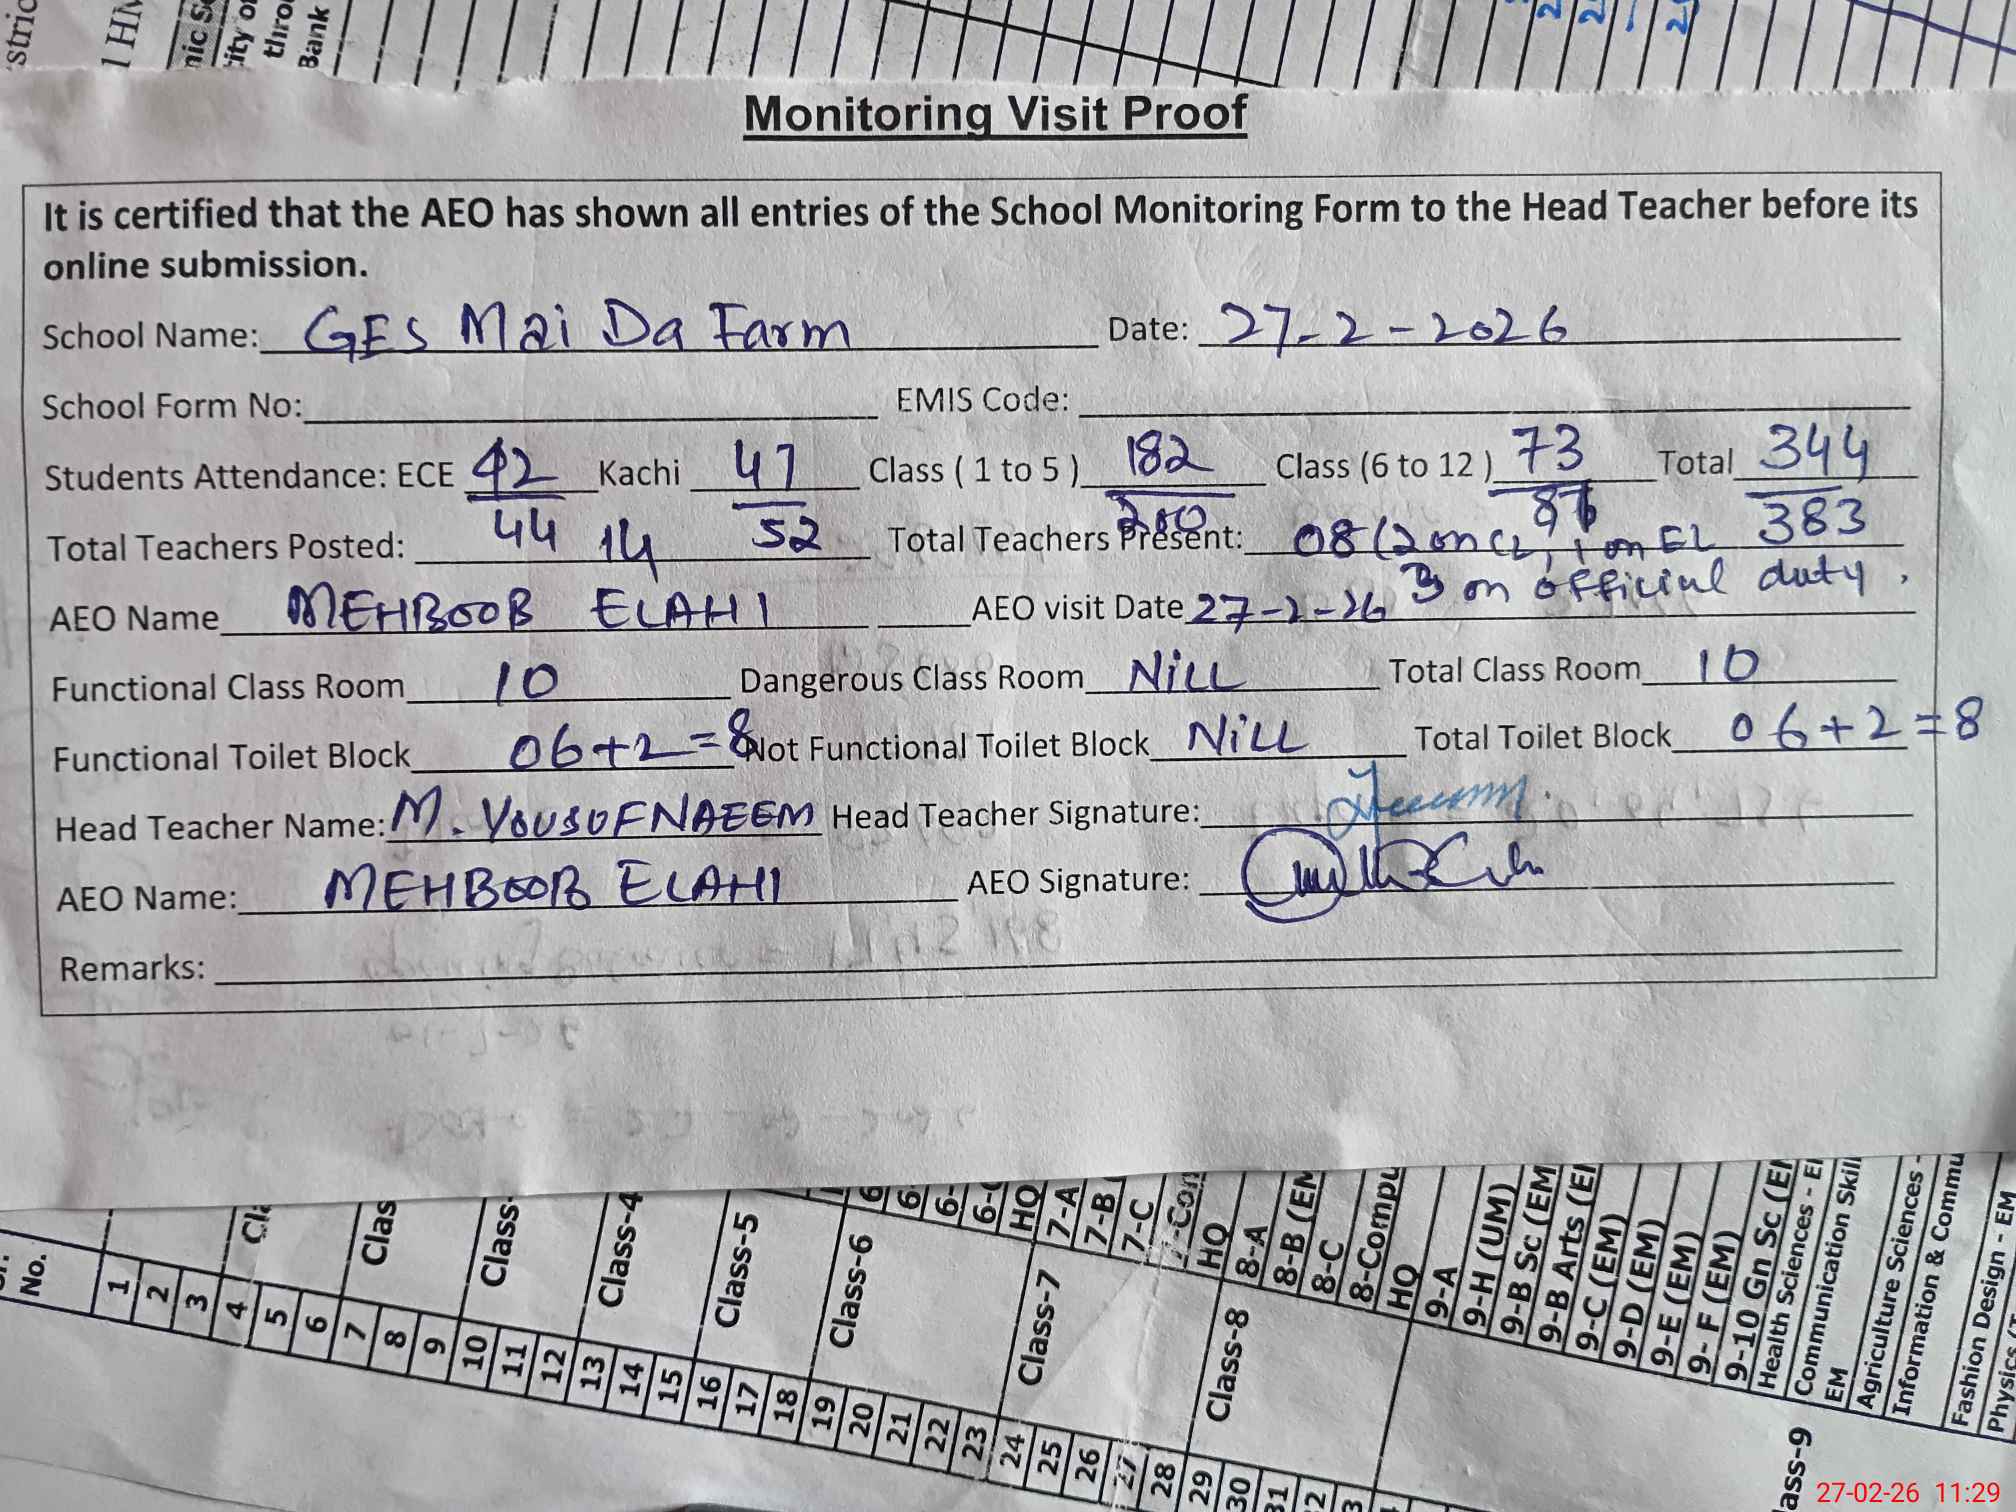 Monitoring Visit Proof
It is certified that the AEO has shown all entries of the School Monitoring Form to the Head Teacher before its
online submission.
School Name: GES Mai Da Farm Date: 27-2-2026
School Form No: EMIS Code:
Students Attendance: ECE 42 Kachi 47 Class ( 1 to 5 ) 182 Class (6 to 12 ) 73 Total 344
44 52 200 87 383
Total Teachers Posted: 14 Total Teachers Present: 08 (2 on CL, 1 on EL
3 on official duty,
AEO Name MEHBOOB ELAHI AEO visit Date 27-2-26
Functional Class Room 10 Dangerous Class Room NiLL Total Class Room 10
Functional Toilet Block 06+2=8 Not Functional Toilet Block NiLL Total Toilet Block 06+2=8
Head Teacher Name: M. YOUSUF NAEEM Head Teacher Signature:
AEO Name: MEHBOOB ELAHI AEO Signature:
Remarks:
No.
1
2
3
4
5
6
7
8
9
10
11
12
13
14
15
16
17
18
19
20
21
22
23
24
25
26
27
28
29
30
Class-4
Class-5
Class-6
Class-7
Class-8
HQ
7-A
7-B
7-C
HQ
8-A
8-B (EM
8-C
8-Compu
HQ
9-A
9-H (UM)
9-B Sc (EM
9-B Arts (E
9-C (EM)
9-D (EM)
9-E (EM)
9- F (EM)
9-10 Gn Sc (E
Health Sciences - E
Communication Skill
EM
Agriculture Sciences -
Information & Commu
Fashion Design - EM
27-02-26 11:29